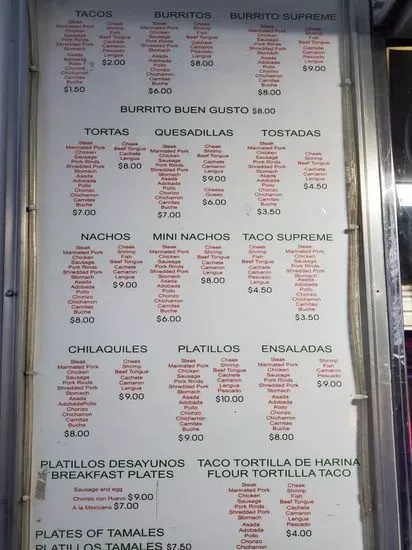 TACOS
Steak
Marinated Pork
Chicken
Sausage
Pork Rinds
Shredded Pork
Stomach
Asada
Adobada
Pollo
Chorizo
Chicharron
Carnitas
Buche
$1.50
Cheek
Shrimp
Fish
Beef Tongue
Cachete
Camaron
Pescado
Lengua
$2.00
BURRITOS
Steak
Marinated Pork
Chicken
Sausage
Pork Rinds
Shredded Pork
Stomach
Asada
Adobada
Pollo
Chorizo
Chicharron
Carnitas
Buche
$6.00
Cheek
Shrimp
Fish
Beef Tongue
Cachete
Camaron
Pescado
Lengua
$8.00
BURRITO SUPREME
Steak
Marinated Pork
Chicken
Sausage
Pork Rinds
Shredded Pork
Stomach
Asada
Adobada
Pollo
Chorizo
Chicharron
Carnitas
Buche
$8.00
Cheek
Shrimp
Fish
Beef Tongue
Cachete
Camaron
Pescado
Lengua
$9.00
BURRITO BUEN GUSTO $8.00
TORTAS
Steak
Marinated Pork
Chicken
Sausage
Pork Rinds
Shredded Pork
Stomach
Asada
Adobada
Pollo
Chorizo
Chicharron
Carnitas
Buche
$7.00
Cheek
Beef Tongue
Cachete
Lengua
$8.00
QUESADILLAS
Steak
Marinated Pork
Chicken
Sausage
Pork Rinds
Shredded Pork
Stomach
Asada
Adobada
Pollo
Chorizo
Chicharron
Carnitas
Buche
$7.00
Cheek
Shrimp
Beef Tongue
Cachete
Camaron
Lengua
$9.00
Cheese
Queso
$6.00
TOSTADAS
Steak
Marinated Pork
Chicken
Sausage
Pork Rinds
Shredded Pork
Stomach
Asada
Adobada
Pollo
Chorizo
Chicharron
Carnitas
Buche
$3.50
Cheek
Shrimp
Beef Tongue
Cachete
Camaron
Lengua
$4.50
NACHOS
Steak
Marinated Pork
Chicken
Sausage
Pork Rinds
Shredded Pork
Stomach
Asada
Adobada
Pollo
Chorizo
Chicharron
Carnitas
Buche
$8.00
Cheek
Shrimp
Fish
Beef Tongue
Cachete
Camaron
Lengua
$9.00
MINI NACHOS
Steak
Marinated Pork
Chicken
Sausage
Pork Rinds
Shredded Pork
Stomach
Asada
Adobada
Pollo
Chorizo
Chicharron
Carnitas
Buche
$6.00
Cheek
Shrimp
Beef Tongue
Cachete
Camaron
Lengua
$8.00
TACO SUPREME
Cheek
Shrimp
Fish
Beef Tongue
Cachete
Camaron
Pescado
Lengua
$4.50
Steak
Marinated Pork
Chicken
Sausage
Pork Rinds
Shredded Pork
Stomach
Asada
Adobada
Pollo
Chorizo
Chicharron
Carnitas
Buche
$3.50
CHILAQUILES
Steak
Marinated Pork
Chicken
Sausage
Pork Rinds
Shredded Pork
Stomach
Asada
AdobadaPollo
Chorizo
Chicharron
Carnitas
Buche
$8.00
Cheek
Shrimp
Beef Tongue
Cachete
Camaron
Lengua
$9.00
PLATILLOS
Steak
Marinated Pork
Chicken
Sausage
Pork Rinds
Shredded Pork
Stomach
Asada
Adobada
Pollo
Chorizo
Chicharron
Carnitas
Buche
$9.00
Cheek
Shrimp
Fish
Beef Tongue
Cachete
Camaron
Lengua
Pescado
$10.00
ENSALADAS
Steak
Marinated Pork
Chicken
Sausage
Pork Rinds
Shredded Pork
Stomach
Asada
Adobada
Pollo
Chorizo
Chicharron
Carnitas
Buche
$8.00
Shrimp
Fish
Camaron
Pescado
$9.00
PLATILLOS DESAYUNOS
BREAKFAST PLATES
Sausage and egg
Chorizo con Huevo $9.00
A la Mexicana $7.00
TACO TORTILLA DE HARINA
FLOUR TORTILLLA TACO
Steak
Marinated Pork
Chicken
Sausage
Pork Rinds
Shredded Pork
Stomach
Asada
Adobada
Pollo
Chorizo
Chicharron
Cheek
Shrimp
Fish
Beef Tongue
Cachete
Camaron
Lengua
Pescado
$4.00
PLATES OF TAMALES
PLATILLOS TAMALES $7.50